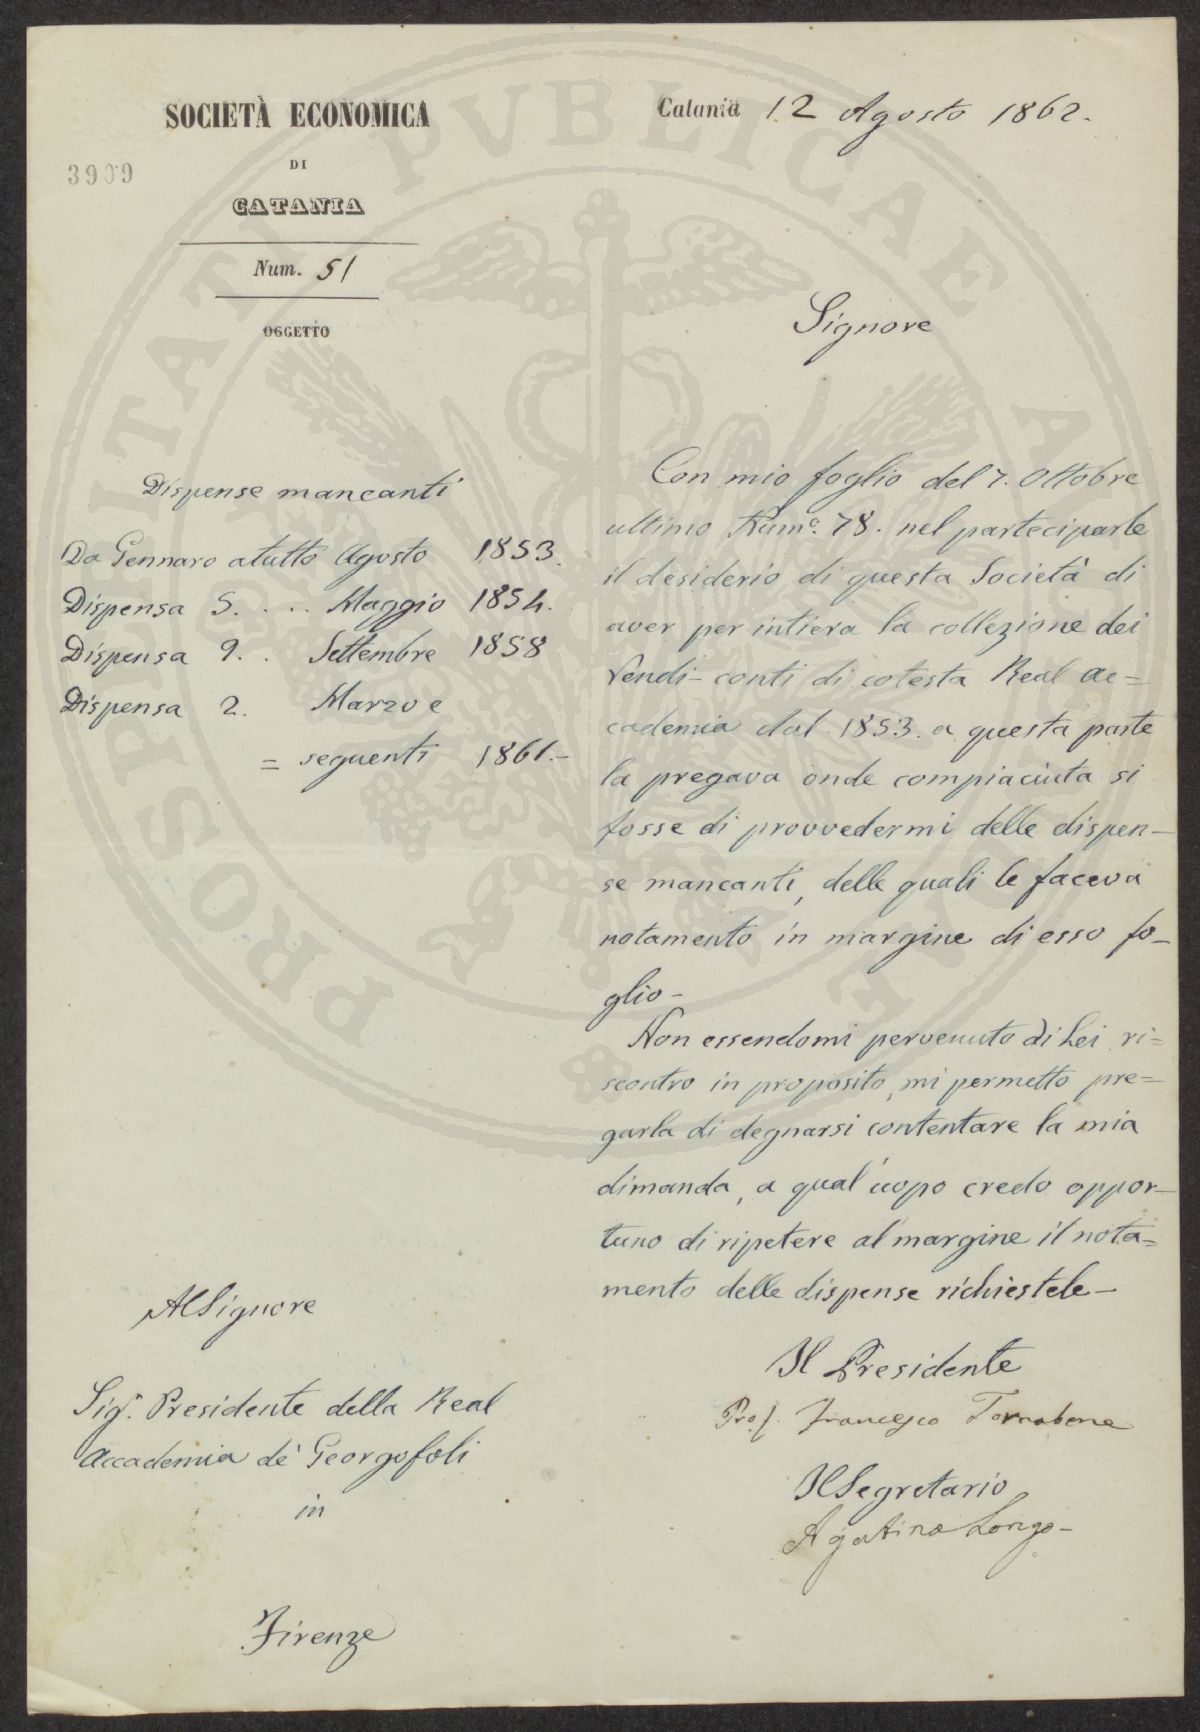 SOCIETÀ ECONOMICA
DI
CATANIA
3909
Num. 51
OGGETTO
Catania 12 Agosto 1862.
Signore
Dispense mancanti
Da Gennaro a tutto Agosto 1853.
Dispensa 5. . .. Maggio 1854.
Dispensa 9. . Settembre 1858
Dispensa 2. Marzo e
= seguenti 1861.-
Con mio foglio del 7. Ottobre
ultimo Num.o 78. nel parteciparle
il desiderio di questa Società di
aver per intiera la collezione dei
rendi-conti di cotesta Real Ac=
cademia dal 1853. a questa parte
la pregava onde compiaciuta si
fosse di provvedermi delle dispen-
se mancanti, delle quali le faceva
notamento in margine di esso fo-
glio-
Non essendomi pervenuto di Lei ri=
scontro in proposito, mi permetto pre=
garla di degnarsi contentare la mia
dimanda, a qual'uopo credo oppor-
tuno di ripetere al margine il nota=
mento delle dispense richiestele-
Il Presidente
Prof. Francesco Tornabene
Il Segretario
Agatino Longo-
Al Signore
Sig.r Presidente della Real
Accademia de' Georgofoli
in
Firenze
PROSPERITATI PUBLICAE AUGENDAE